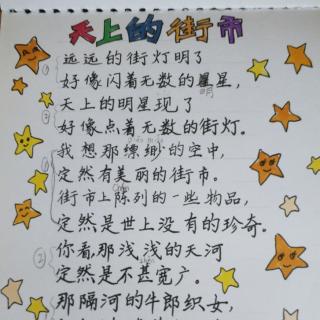 天上的街市
远远的街灯明了
好像闪着无数的星星,
明
天上的明星现了
好像点着无数的街灯。
我想那缥缈的空中,
定然有美丽的街市。
街市上陈列的一些物品,
定然是世上没有的珍奇。
你看,那浅浅的天河
定然是不甚宽广。
那隔河的牛郎织女,